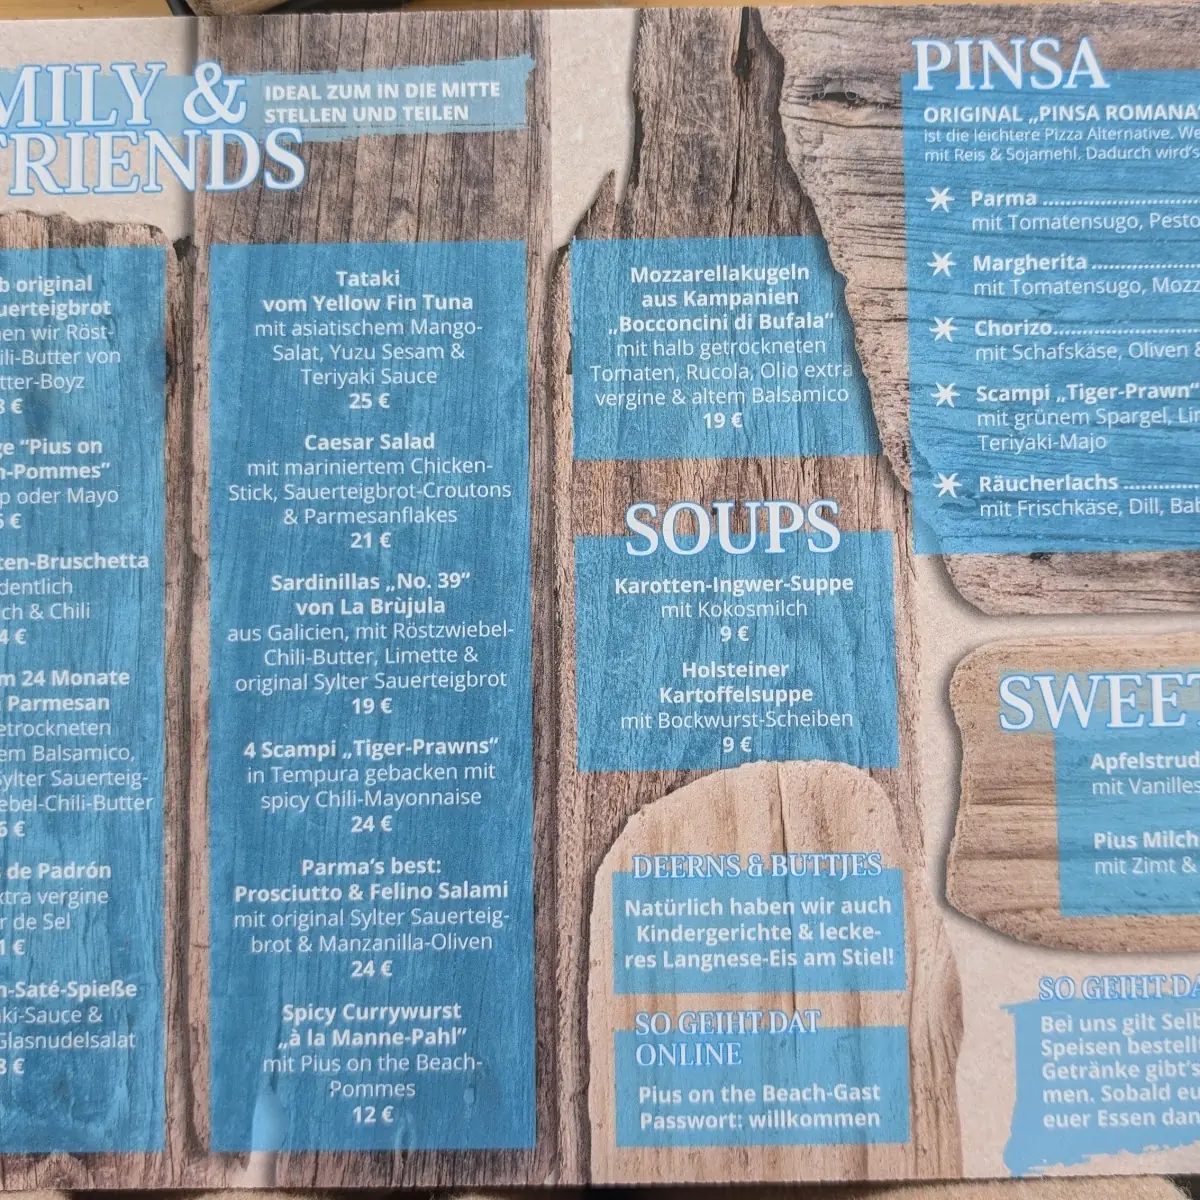 MILY &
FRIENDS
IDEAL ZUM IN DIE MITTE
STELLEN UND TEILEN
b original
uerteigbrot
en wir Röst-
ili-Butter von
tter-Boyz
€
ge "Pius on
n-Pommes"
p oder Mayo
€
ten-Bruschetta
dentlich
ch & Chili
4 €
m 24 Monate
Parmesan
etrockneten
em Balsamico,
Sylter Sauerteig-
ebel-Chili-Butter
€
de Padrón
xtra vergine
r de Sel
1 €
n-Saté-Spieße
ki-Sauce &
Glasnudelsalat
€
Tataki
vom Yellow Fin Tuna
mit asiatischem Mango-
Salat, Yuzu Sesam &
Teriyaki Sauce
25 €
Caesar Salad
mit mariniertem Chicken-
Stick, Sauerteigbrot-Croutons
& Parmesanflakes
21 €
Sardinillas „No. 39”
von La Brùjula
aus Galicien, mit Röstzwiebel-
Chili-Butter, Limette &
original Sylter Sauerteigbrot
19 €
4 Scampi „Tiger-Prawns”
in Tempura gebacken mit
spicy Chili-Mayonnaise
24 €
Parma’s best:
Prosciutto & Felino Salami
mit original Sylter Sauerteig-
brot & Manzanilla-Oliven
24 €
Spicy Currywurst
„à la Manne-Pahl”
mit Pius on the Beach-
Pommes
12 €
Mozzarellakugeln
aus Kampanien
„Bocconcini di Bufala”
mit halb getrockneten
Tomaten, Rucola, Olio extra
vergine & altem Balsamico
19 €
SOUPS
Karotten-Ingwer-Suppe
mit Kokosmilch
9 €
Holsteiner
Kartoffelsuppe
mit Bockwurst-Scheiben
9 €
DEERNS & BUTTJES
Natürlich haben wir auch
Kindergerichte & lecke-
res Langnese-Eis am Stiel!
SO GEIHT DAT
ONLINE
Pius on the Beach-Gast
Passwort: willkommen
PINSA
ORIGINAL „PINSA ROMANA
ist die leichtere Pizza Alternative. We
mit Reis & Sojamehl. Dadurch wird’s
Parma
mit Tomatensugo, Pesto
Margherita
mit Tomatensugo, Mozz
Chorizo
mit Schafskäse, Oliven &
Scampi „Tiger-Prawn”
mit grünem Spargel, Lim
Teriyaki-Majo
Räucherlachs
mit Frischkäse, Dill, Bat
SWEET
Apfelstrud
mit Vanilles
Pius Milch
mit Zimt &
SO GEIHT DA
Bei uns gilt Sell
Speisen bestellt
Getränke gibt’s
men. Sobald eu
euer Essen dan